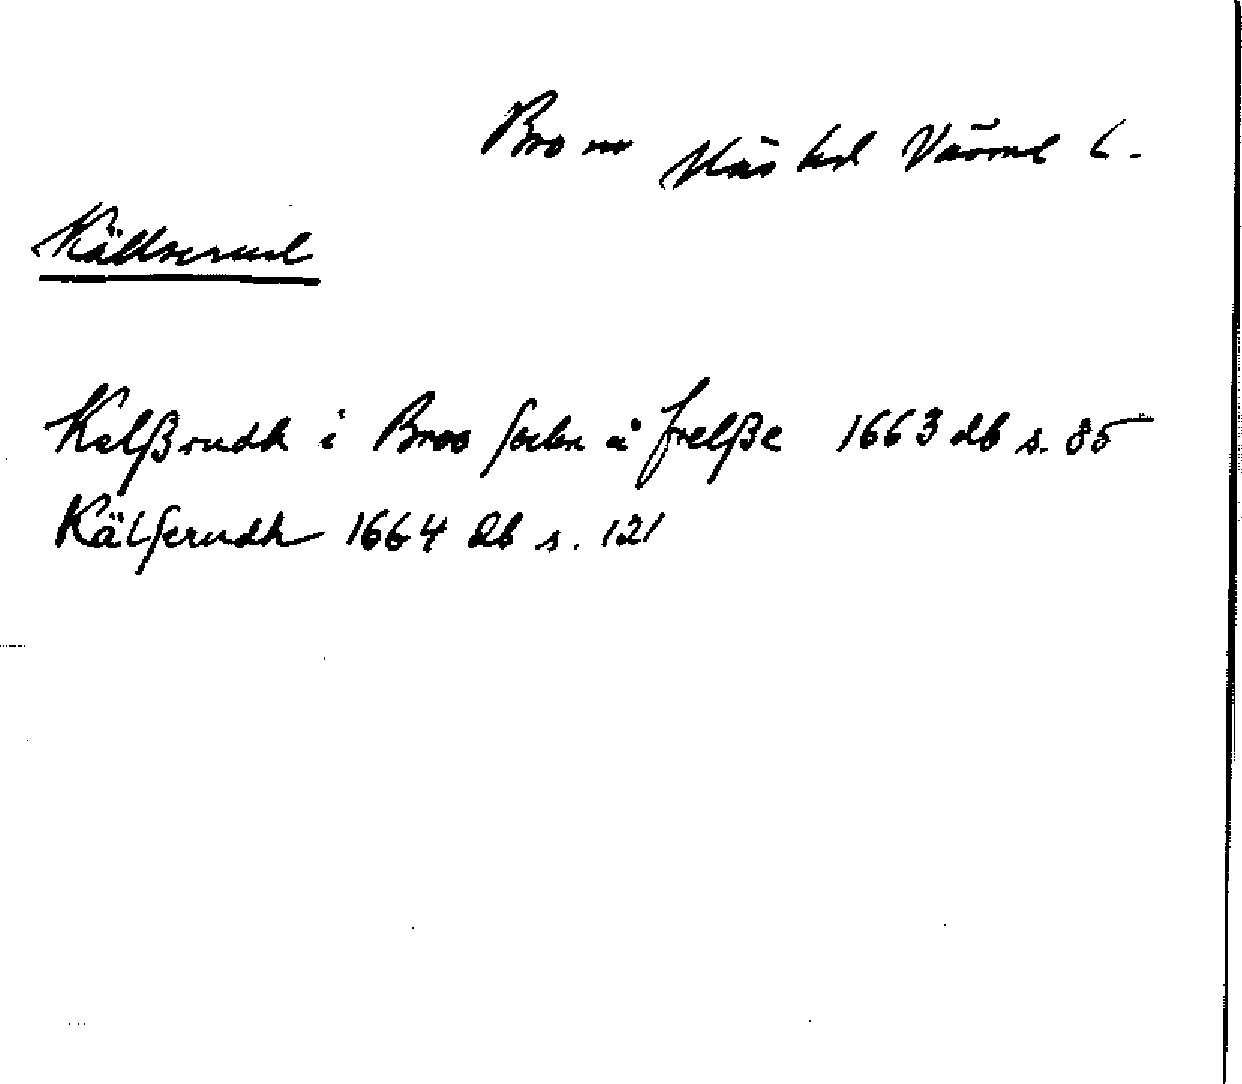 Bro sn Näs hd Värml l.
Källserud
Kelßrudh i Broo sochn å frelße 1663 db s. 85
Kälserudh 1664 db s. 121